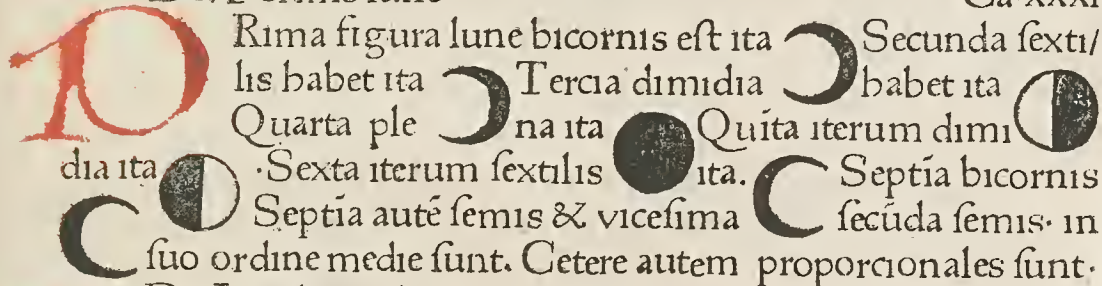 Ca xxxi
PRima figura lune bicornis eſt ita Secunda ſexti/
lis habet ita Tercia dimidia habet ita
Quarta ple na ita Quīta iterum dimi
dia ita ·Sexta iterum ſextilis ita. Septīa bicornis
Septīa autē ſemis & viceſima ſecūda ſemis· in
ſuo ordine medie ſunt. Cetere autem proporcionales ſunt·